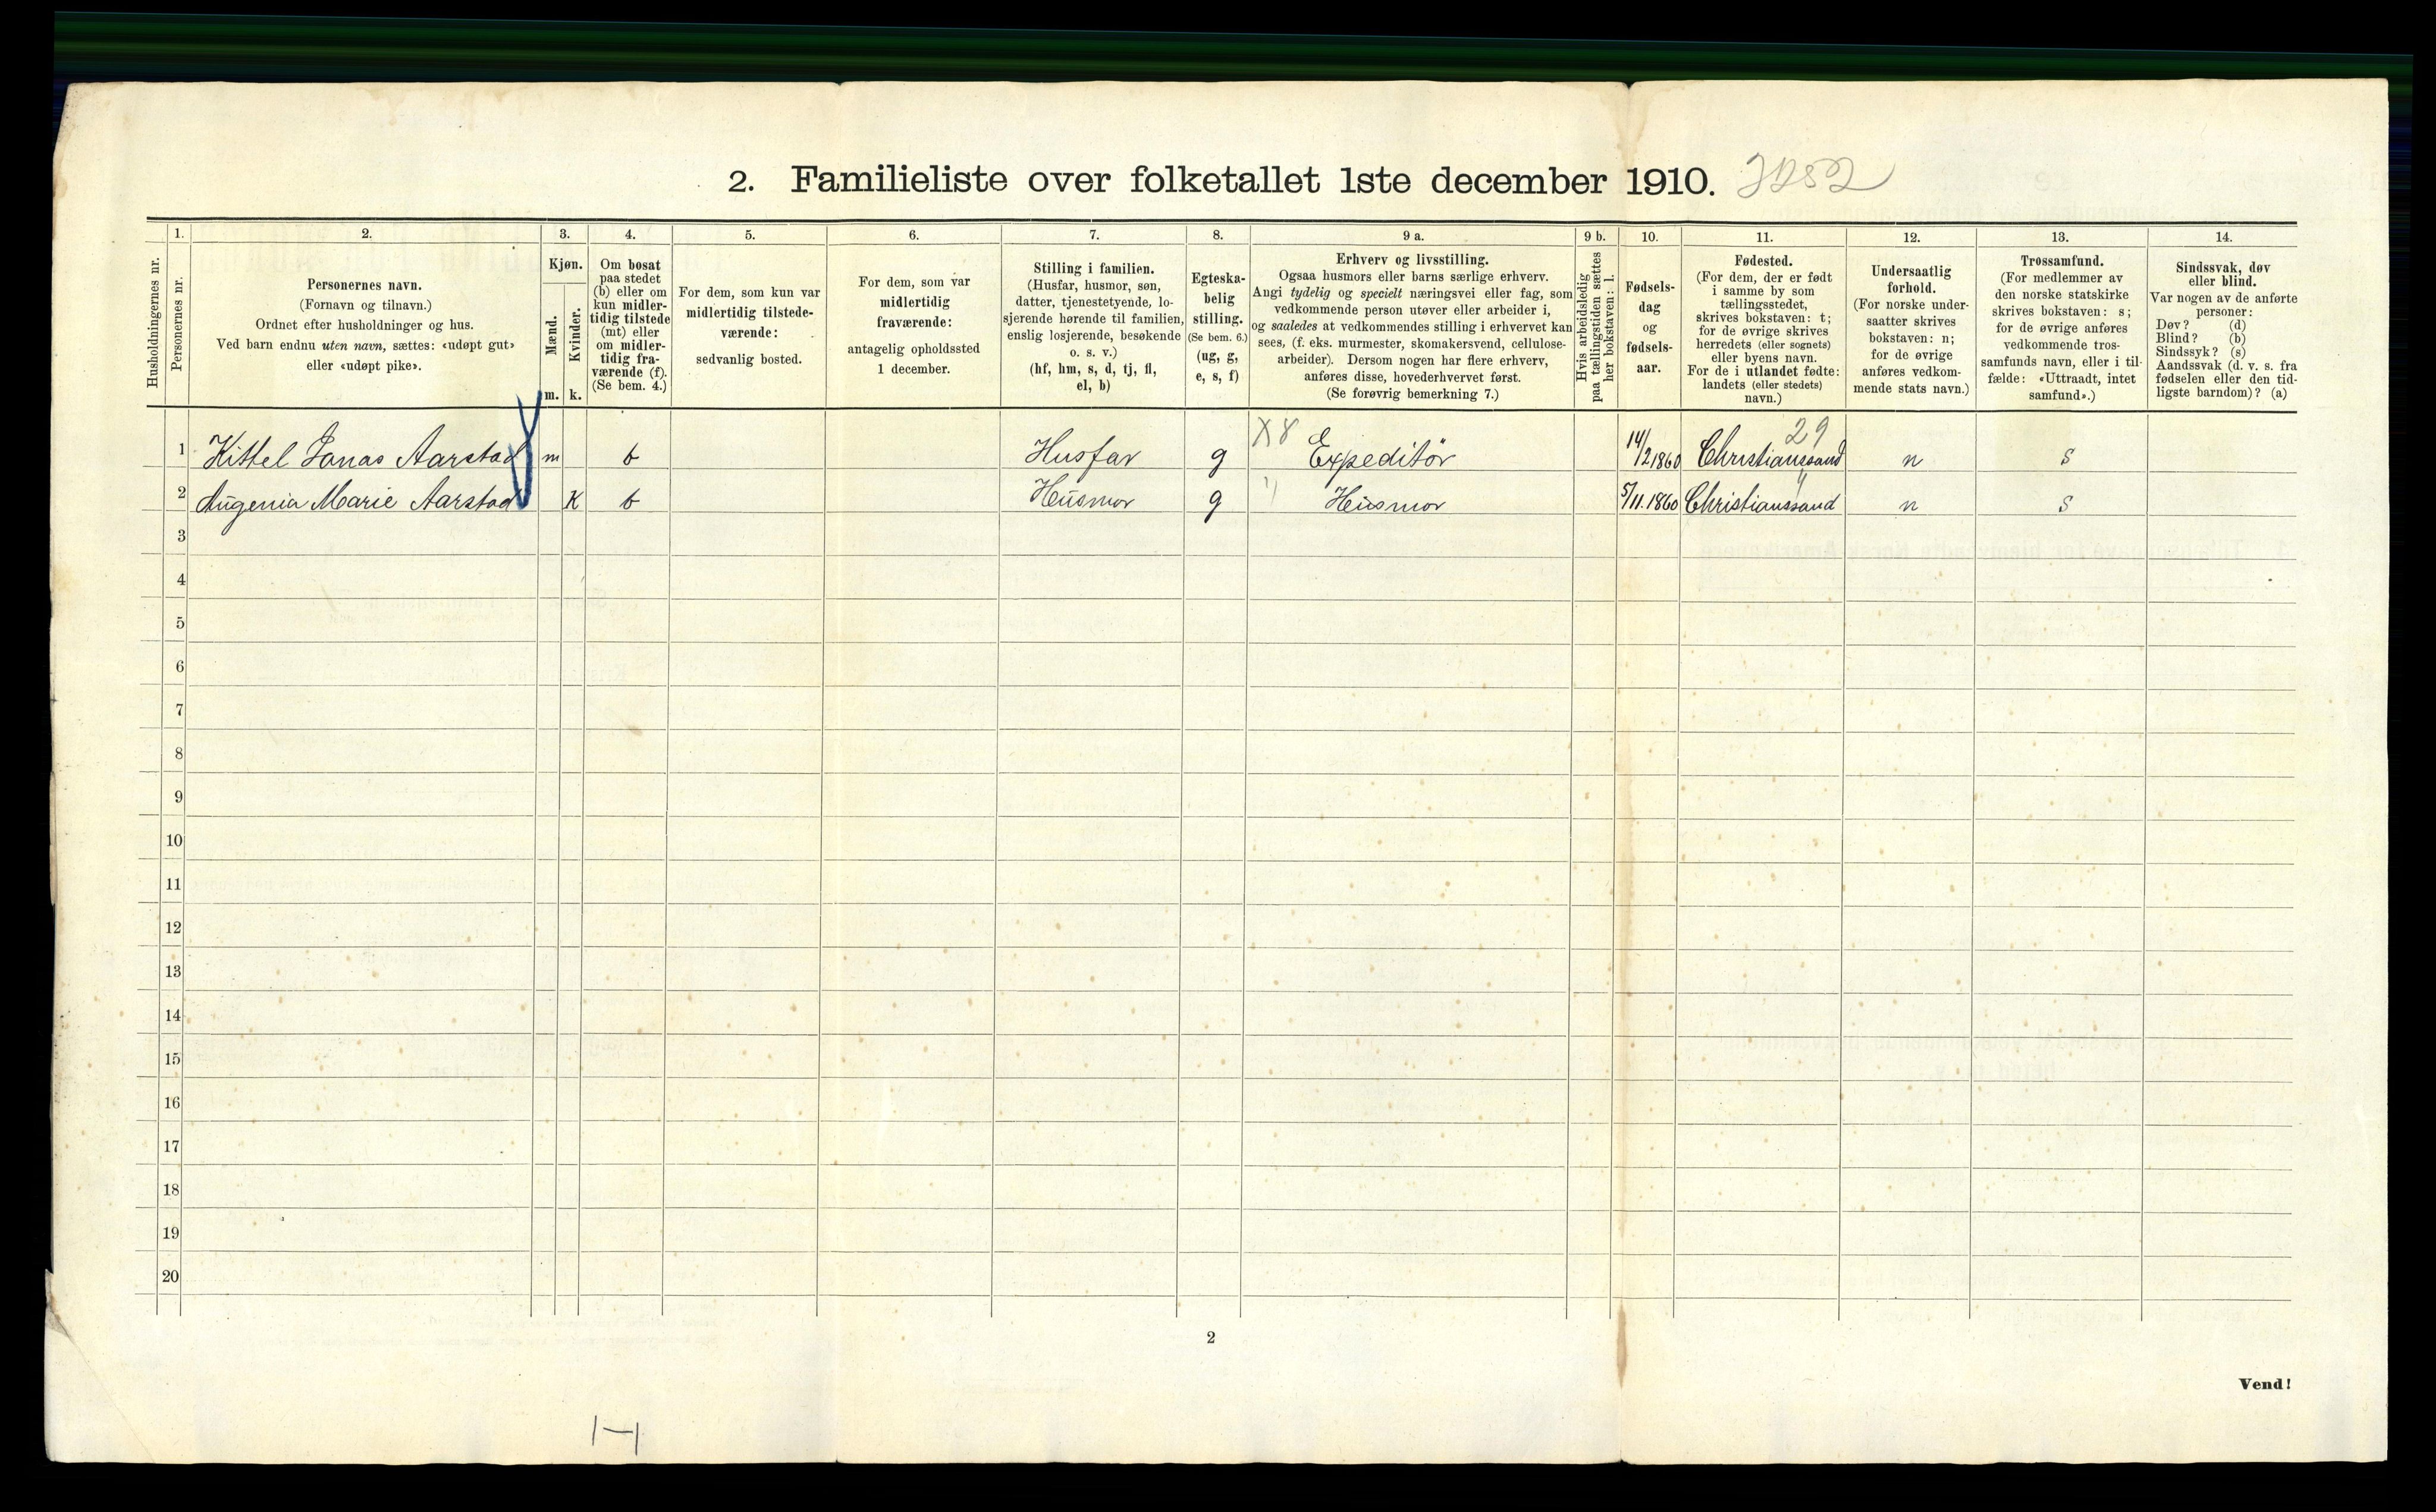 2. Familieliste over folketallet 1ste december 1910.
Husholdningernes nr.
1.
Personernes nr.
2.
Personernes navn.
(Fornavn og tilnavn.)
Ordnet efter husholdninger og hus.
Ved barn endnu uten navn, sættes: «udøpt gut»
eller «udøpt pike».
3.
Kjøn.
Mænd.
Kvinder.
m. k.
4.
Om bosat
paa stedet
(b) eller om
kun midler-
tidig tilstede
(mt) eller
om midler-
tidig fra-
værende (f).
(Se bem. 4.)
5.
For dem, som kun var
midlertidig tilstede-
værende:
sedvanlig bosted.
6.
For dem, som var
midlertidig
fraværende:
antagelig opholdssted
1 december.
7.
Stilling i familien.
(Husfar, husmor, søn,
datter, tjenestetyende, lo-
sjerende hørende til familien,
enslig losjerende, besøkende
o. s. v.)
(hf, hm, s, d, tj, fl,
el, b)
8.
Egteska-
belig
stilling.
(Se bem. 6.)
(ug, g,
e, s, f)
9 a.
Erhverv og livsstilling.
Ogsaa husmors eller barns særlige erhverv.
Angi tydelig og specielt næringsvei eller fag, som
vedkommende person utøver eller arbeider i,
og saaledes at vedkommendes stilling i erhvervet kan
sees, (f. eks. murmester, skomakersvend, cellulose-
arbeider). Dersom nogen har flere erhverv,
anføres disse, hovederhvervet først.
(Se forøvrig bemerkning 7.)
9 b.
Hvis arbeidsledig
paa tællingstiden sættes
her bokstaven: l.
10.
Fødsels-
dag
og
fødsels-
aar.
11.
Fødested.
(For dem, der er født
i samme by som
tællingsstedet,
skrives bokstaven: t;
for de øvrige skrives
herredets (eller sognets)
eller byens navn.
For de i utlandet fødte:
landets (eller stedets)
navn.)
12.
Undersaatlig
forhold.
(For norske under-
saatter skrives
bokstaven: n;
for de øvrige
anføres vedkom-
mende stats navn.)
13.
Trossamfund.
(For medlemmer av
den norske statskirke
skrives bokstaven: s;
for de øvrige anføres
vedkommende tros-
samfunds navn, eller i til-
fælde: «Uttraadt, intet
samfund».)
14.
Sindssvak, døv
eller blind.
Var nogen av de anførte
personer:
Døv? (d)
Blind? (b)
Sindssyk? (s)
Aandssvak (d. v. s. fra
fødselen eller den tid-
ligste barndom)? (a)
X8 29
1 Kittel Jonas Aarstad m b Husfar g Expeditör 14/2 1860 Christianssand n s
2 Augenia Marie Aarstad K b Husmor g Husmor 5/11.1860 Christianssand n s
3
4
5
6
7
8
9
10
11
12
13
14
15
16
17
18
19
20
2
Vend!
1-1